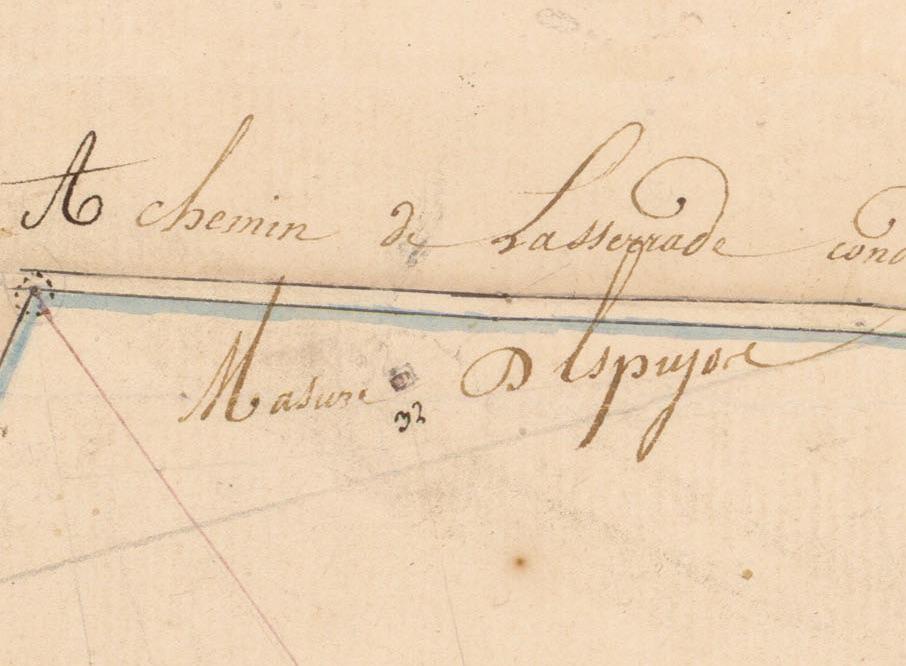 A chemin de Lasserrade cond
Masure D Espujos
32